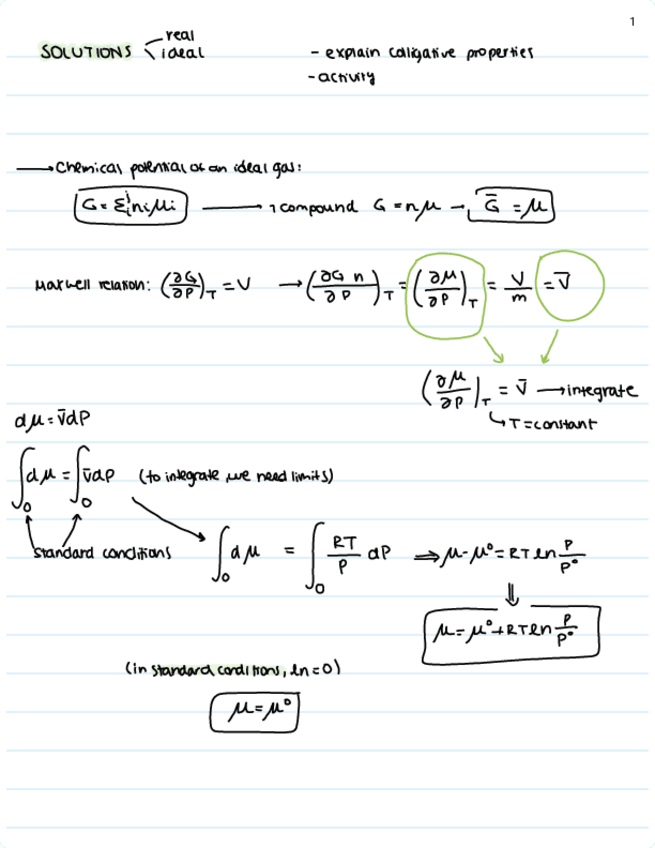 1
SOLUTIONS real
ideal
- explain colligative properties
- activity
→ Chemical potential of an ideal gas:
G = Σᵢ nᵢμᵢ → 1 compound G = nμ → G̅ = μ
Maxwell relation: (∂G/∂P)_T = V → (∂G n/∂P)_T = (∂μ/∂P)_T = V/m = V̅
(∂μ/∂P)_T = V̅ → integrate
↳ T = constant
dμ = V̅dP
∫₀ dμ = ∫₀ V̅dP (to integrate, we need limits)
standard conditions ∫₀ dμ = ∫₀ RT/P dP ⇒ μ - μ° = RT ln P/P°
⇓
μ = μ° + RT ln P/P°
(in standard conditions, ln = 0)
μ = μ°